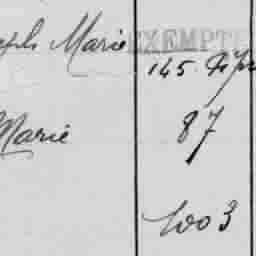 Marie EXEMPTE
145
Marie 87
1003